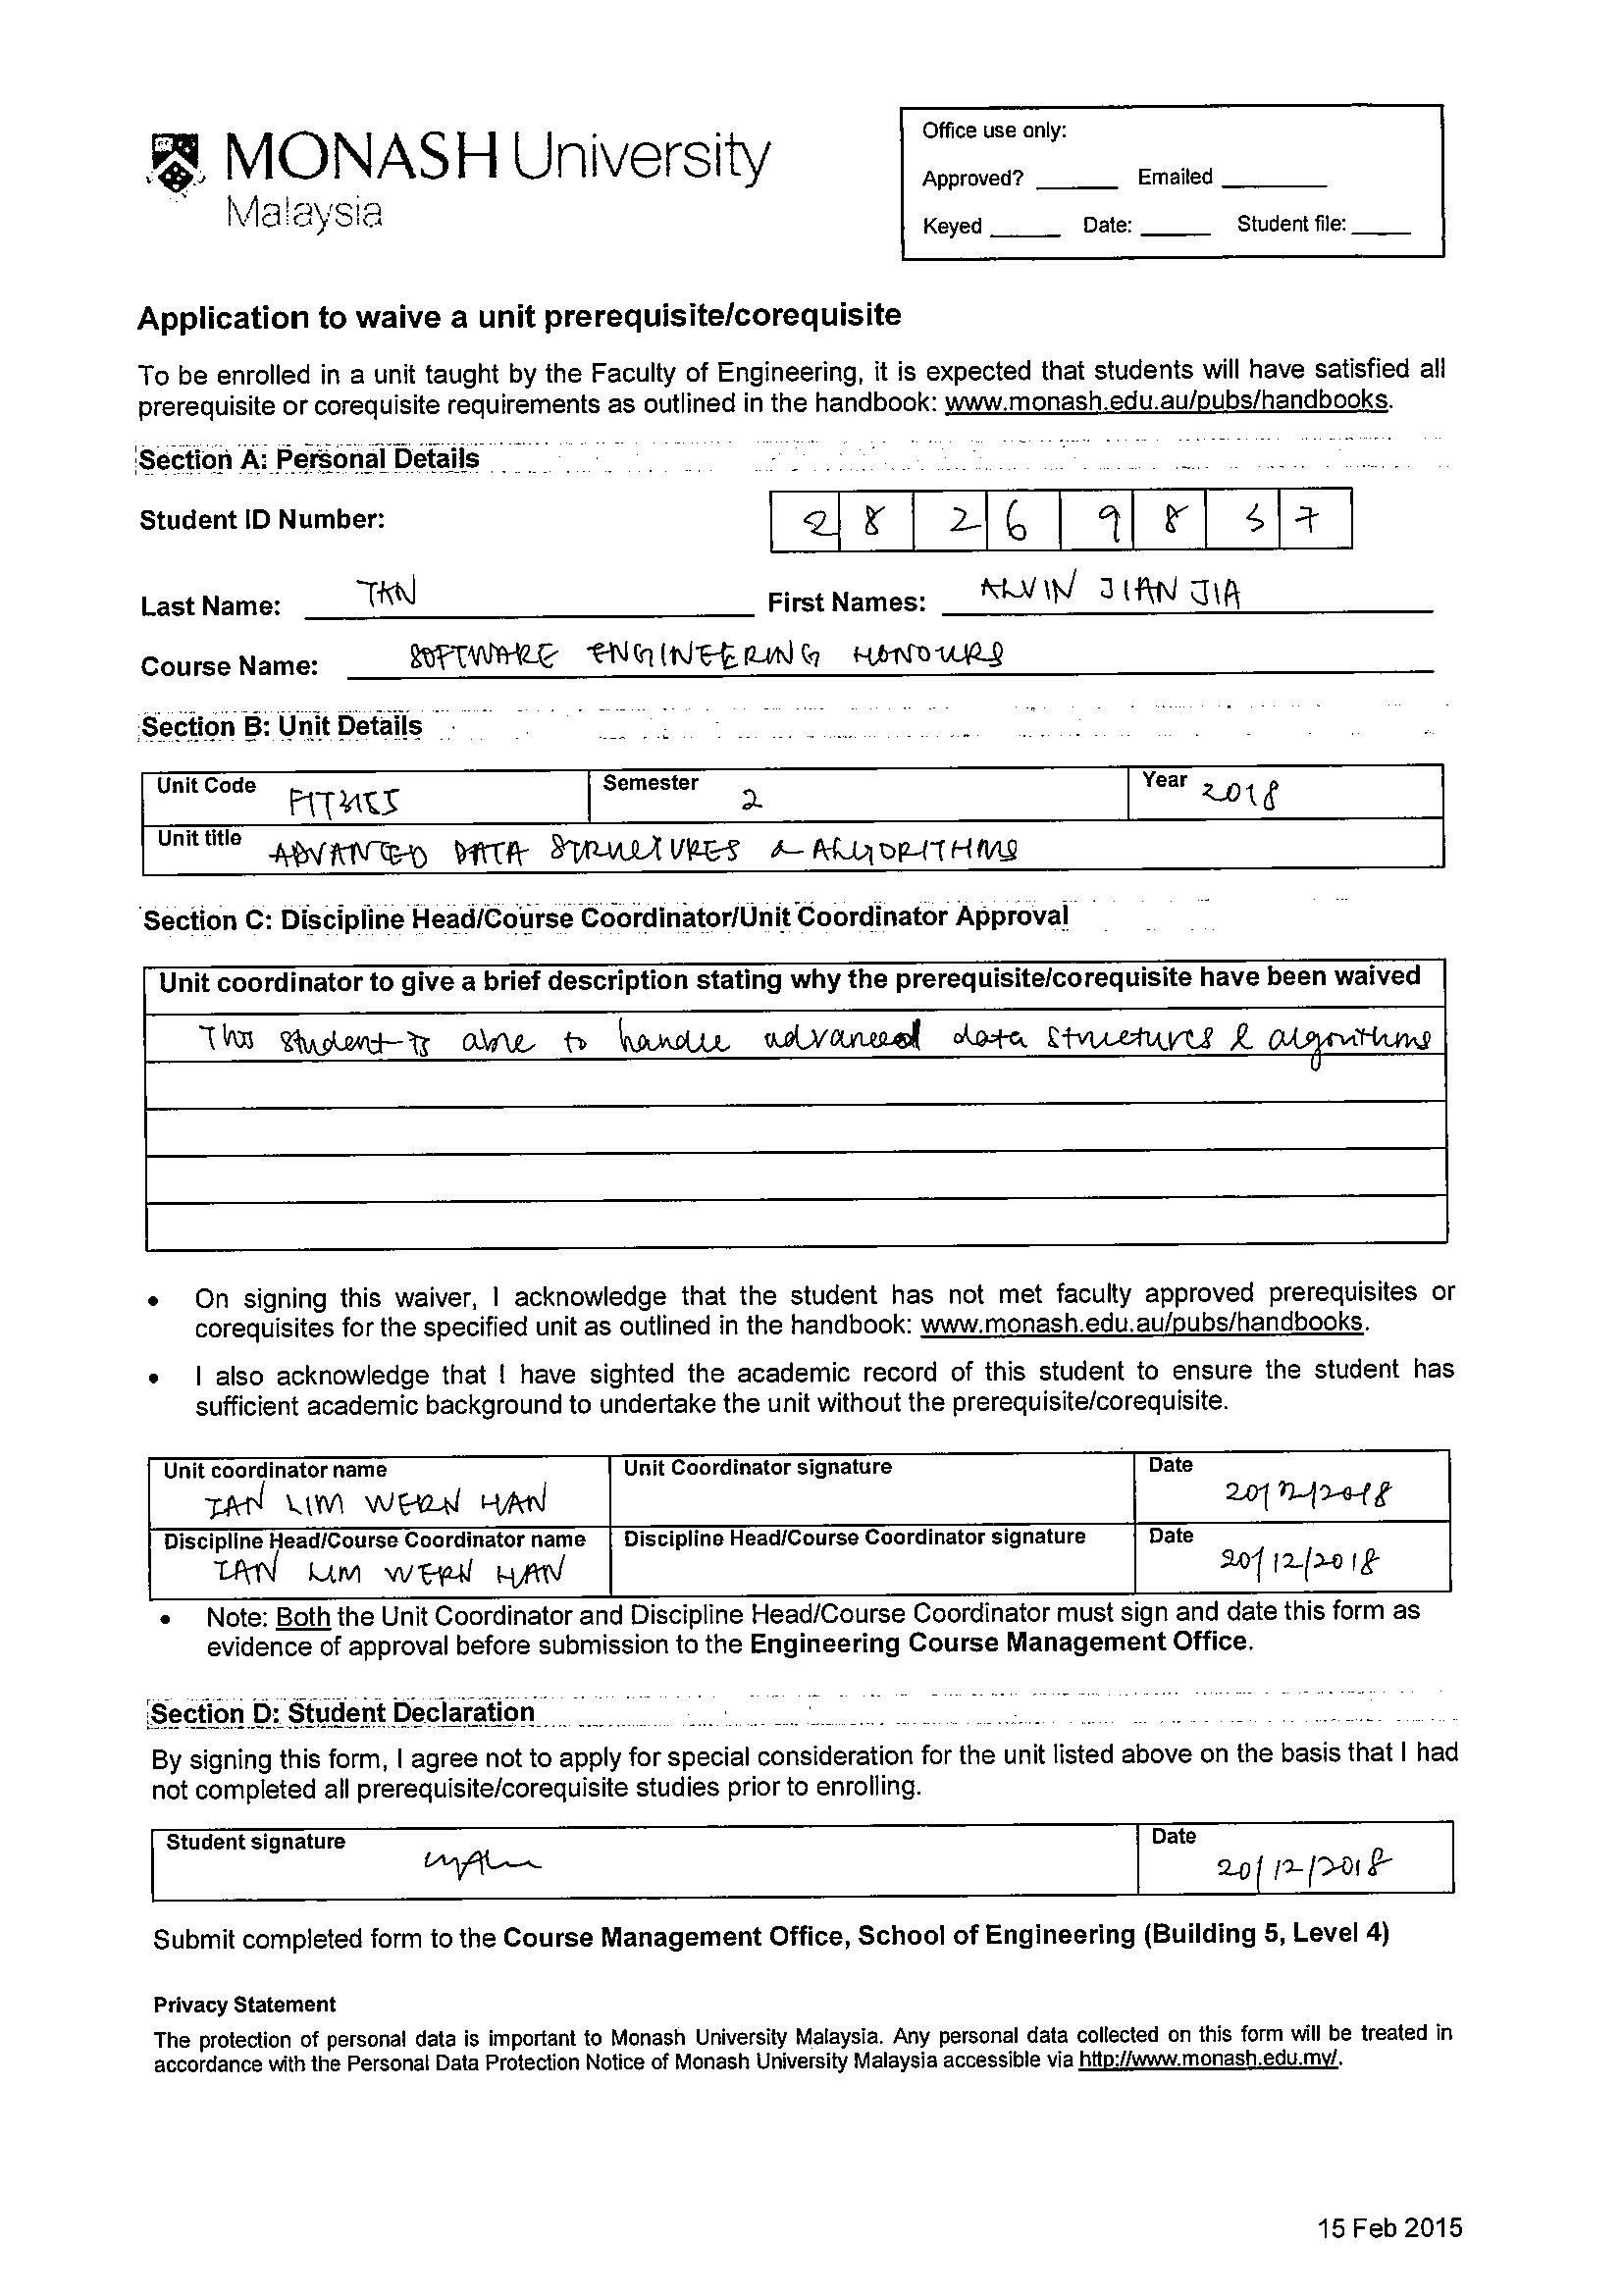 MONASH University
Malaysia
Office use only:
Approved? ______ Emailed ________
Keyed _____ Date: _____ Student file: ____
Application to waive a unit prerequisite/corequisite
To be enrolled in a unit taught by the Faculty of Engineering, it is expected that students will have satisfied all
prerequisite or corequisite requirements as outlined in the handbook: www.monash.edu.au/pubs/handbooks.
Section A: Personal Details
Student ID Number: 2 8 2 6 9 8 3 7
Last Name: TAN First Names: ALVIN JIAN JIA
Course Name: SOFTWARE ENGINEERING HONOURS
Section B: Unit Details
Unit Code Semester 2 Year 2018
Unit title ADVANCED DATA STRUCTURES & ALGORITHMS
Section C: Discipline Head/Course Coordinator/Unit Coordinator Approval
Unit coordinator to give a brief description stating why the prerequisite/corequisite have been waived
This student is able to handle advanced data structures & algorithms
• On signing this waiver, I acknowledge that the student has not met faculty approved prerequisites or
corequisites for the specified unit as outlined in the handbook: www.monash.edu.au/pubs/handbooks.
• I also acknowledge that I have sighted the academic record of this student to ensure the student has
sufficient academic background to undertake the unit without the prerequisite/corequisite.
Unit coordinator name Unit Coordinator signature Date
IAN LIM WERN HAN 20/12/2018
Discipline Head/Course Coordinator name Discipline Head/Course Coordinator signature Date
IAN LIM WERN HAN 20/12/2018
• Note: Both the Unit Coordinator and Discipline Head/Course Coordinator must sign and date this form as
evidence of approval before submission to the Engineering Course Management Office.
Section D: Student Declaration
By signing this form, I agree not to apply for special consideration for the unit listed above on the basis that I had
not completed all prerequisite/corequisite studies prior to enrolling.
Student signature Date
20/12/2018
Submit completed form to the Course Management Office, School of Engineering (Building 5, Level 4)
Privacy Statement
The protection of personal data is important to Monash University Malaysia. Any personal data collected on this form will be treated in
accordance with the Personal Data Protection Notice of Monash University Malaysia accessible via http://www.monash.edu.my/.
15 Feb 2015